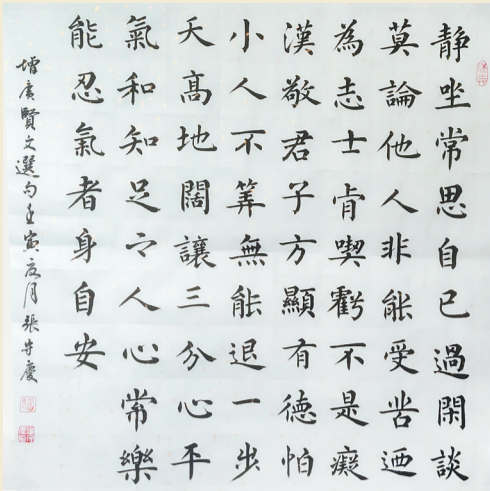 静坐常思自己過閑談
莫論他人非能受苦迺
為志士肯喫虧不是癡
漢敬君子方顯有德怕
小人不筭無能退一步
天髙地闊讓三分心平
氣和知足之人心常樂
能忍氣者身自安
增廣賢文選句壬寅夏月張守慶